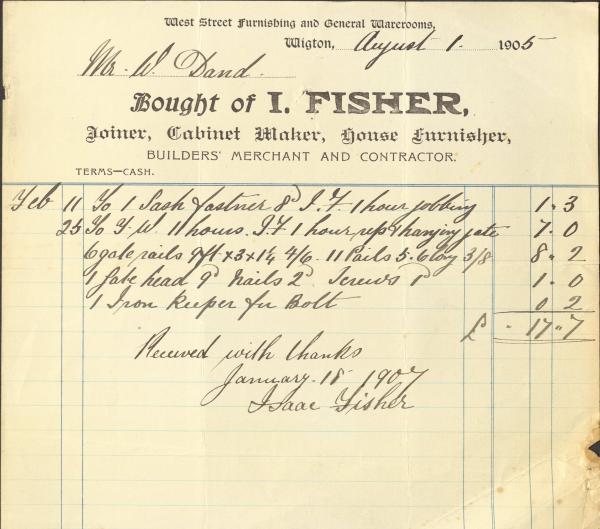 West Street Furnishing and General Warerooms,
Wigton, August 1. 1905
Mr. W. Dand.
Bought of I. FISHER,
Joiner, Cabinet Maker, House Furnisher,
BUILDERS' MERCHANT AND CONTRACTOR.
TERMS—CASH.
Feb 11 To 1 Sash fastner 8d I.F. 1 hour jobbing 1 " 3
25 To F W. 11 hours. I.F 1 hour rep & hanging gate 7. 0
6 gate rails 9ft x 3 x 1¼ 4/6. 11 Pails 5. 6 long 3/8 8 " 2
1 Gate head 9d Nails 2d Screws 1d 1. 0
1 Iron Keeper for Bolt 0 2
£ " 17 " 7
Received with thanks
January. 18 1907
Isaac Fisher